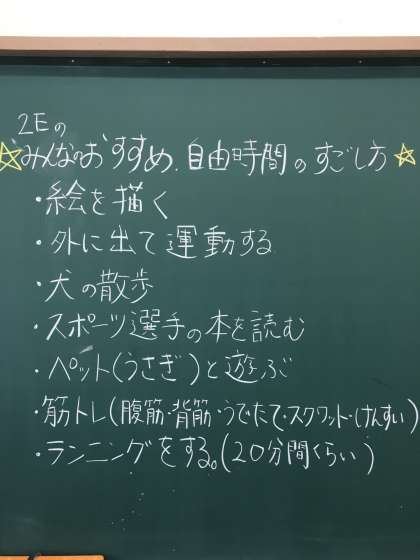 2Eの
☆みんなのおすすめ.自由時間のすごし方☆
・絵を描く
・外に出て運動する
・犬の散歩
・スポーツ選手の本を読む
・ペット(うさぎ)と遊ぶ
・筋トレ(腹筋・背筋・うでたて・スクワット・けんすい)
・ランニングをする。(20分間くらい)